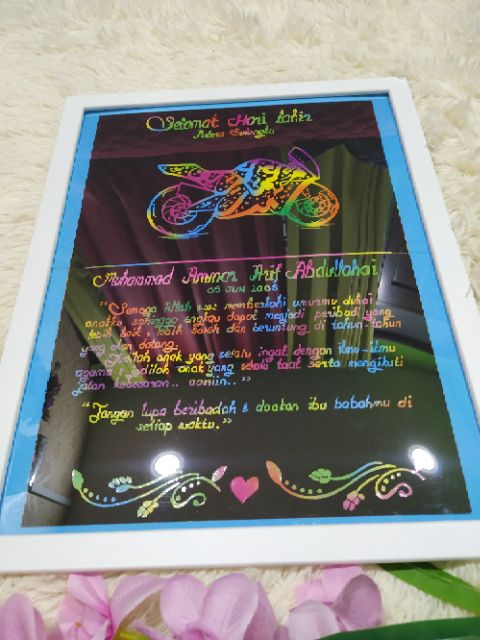 Selamat Hari Lahir
Putera Sulungku
Muhammad Ammar Arif Abdullahai
05 JUN 2008
"Semoga Allah swt memberkahi umurmu duhai
anakku sehingga engkau dapat menjadi peribadi yang
lebih baik, lebih soleh dan beruntung di tahun-tahun
yang akan datang.
Jadilah anak yang selalu ingat dengan ilmu-ilmu
agama & jadilah anak yang selalu taat serta mengikuti
jalan kebenaran.. aamiin.."
"Jangan lupa beribadah & doakan ibu babahmu di
setiap waktu."